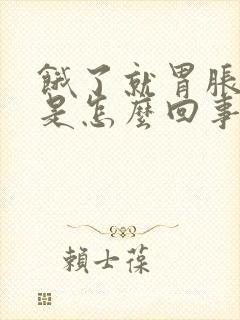 餓了就胃脹
是怎麼回事
賴士葆